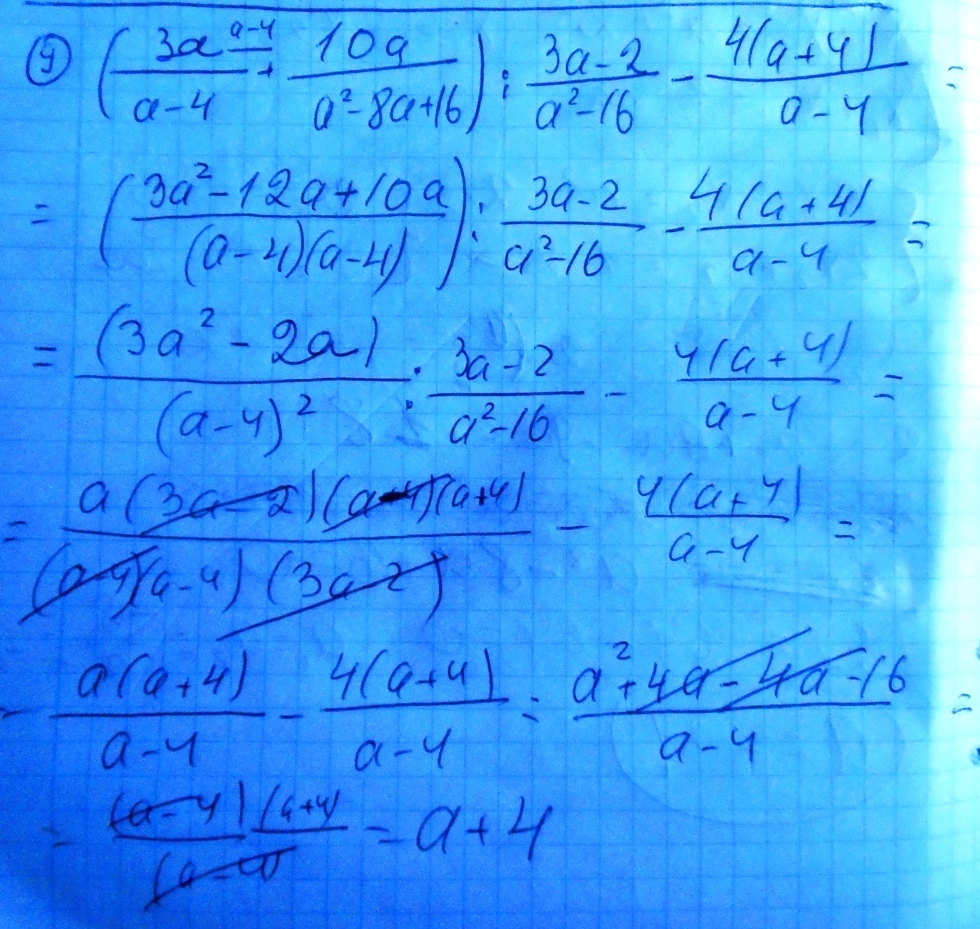 ⑨ (3a^(a-4)/(a-4) + 10a/(a²-8a+16)) : (3a-2)/(a²-16) - 4(a+4)/(a-4) =
= ((3a²-12a+10a)/((a-4)(a-4))) : (3a-2)/(a²-16) - 4(a+4)/(a-4) =
= (3a²-2a)/(a-4)² : (3a-2)/(a²-16) - 4(a+4)/(a-4) =
= a(3a-2)(a-4)(a+4)/((a-4)(a-4)(3a-2)) - 4(a+4)/(a-4) =
= a(a+4)/(a-4) - 4(a+4)/(a-4) = (a²+4a-4a-16)/(a-4) =
= (a-4)(a+4)/(a-4) = a+4